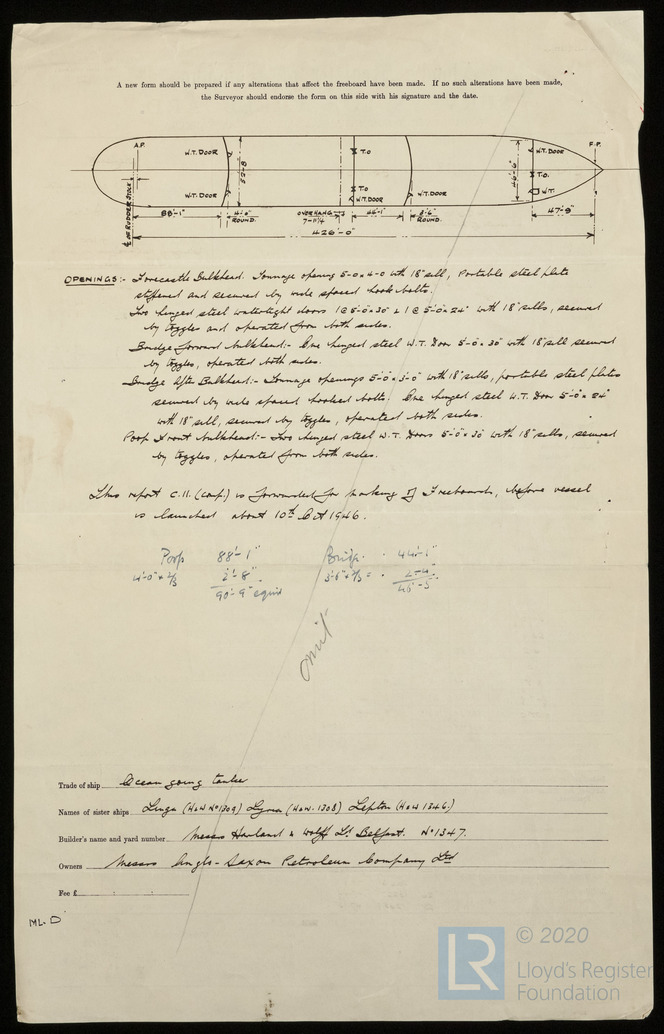 A new form should be prepared if any alterations that affect the freeboard have been made. If no such alterations have been made,
the Surveyor should endorse the form on this side with his signature and the date.
A.P.
F.P.
W.T. DOOR
T.O
W.T. DOOR
53'-8
46'-6"
T.O.
T.O
W.T. DOOR
W.T. DOOR
W.T. DOOR
W.T.
℄ OF RUDDER STOCK
88'-1"
4'-0"
ROUND.
OVERHANG
7'-11¼
44'-1"
3'-6
ROUND.
47'-9"
426'-0"
OPENINGS:- Forecastle Bulkhead. Tonnage opening 5-0 x 4-0 with 18" sill, Portable steel plate
stiffened and secured by wide spaced hook bolts.
Two hinged steel watertight doors 1 @ 5'-0" x 30" & 1 @ 5'-0" x 24" with 18" sills, secured
by toggles and operated from both sides.
Bridge forward bulkhead:- One hinged steel W.T. Door 5'-0" x 30" with 18" sill secured
by toggles, operated both sides.
Bridge After Bulkhead:- Tonnage openings 5'-0" x 3'-0" with 18" sills, portable steel plates
secured by wide spaced hooked bolts. One hinged steel W.T. Door 5'-0" x 24"
with 18" sill, secured by toggles, operated both sides.
Poop Front bulkhead:- Two hinged steel W.T. Doors 5'-0" x 30" with 18" sills, secured
by toggles, operated from both sides.
This report C.11. (Comp.) is forwarded for marking of Freeboards, before vessel
is launched about 10th Oct 1946.
Poop 88'-1"
4'-0" x 2/3 2'-8"
90'-9" equiv
Bridge 44'-1"
3'-6" x 2/3 = 2-4"
46'-5"
omit
Trade of ship Ocean going tanker
Names of sister ships Linga (H&W No 1309) Lyria (H&W. 1308) Lepton (H&W 1346.)
Builder's name and yard number Messrs Harland & Wolff Ld Belfast. No 1347.
Owners Messrs Anglo-Saxon Petroleum Company Ltd
Fee £
ML. D
LR
© 2020
Lloyd's Register
Foundation